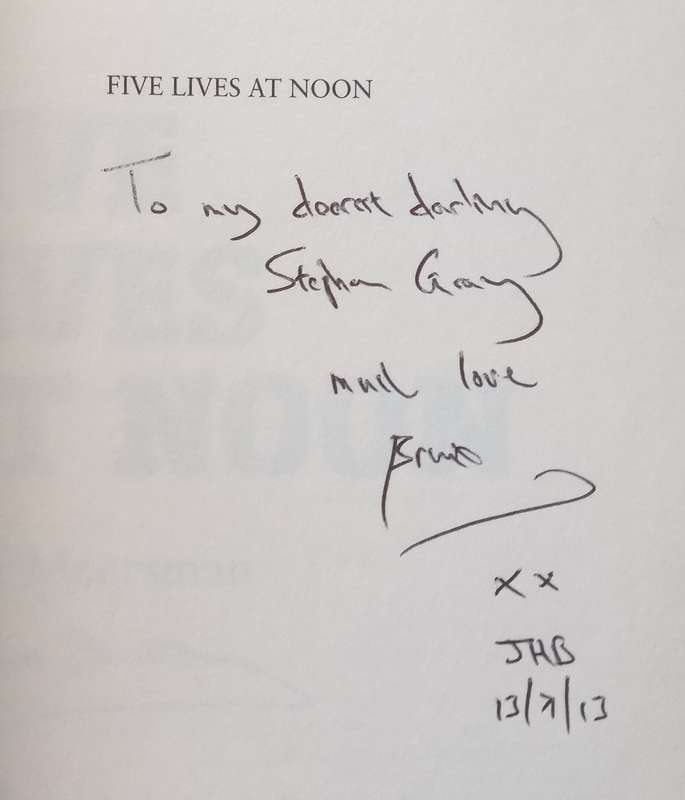 FIVE LIVES AT NOON
To my dearest darling
Stephen Gray
much love
Brent
xx
JHB
13/7/13